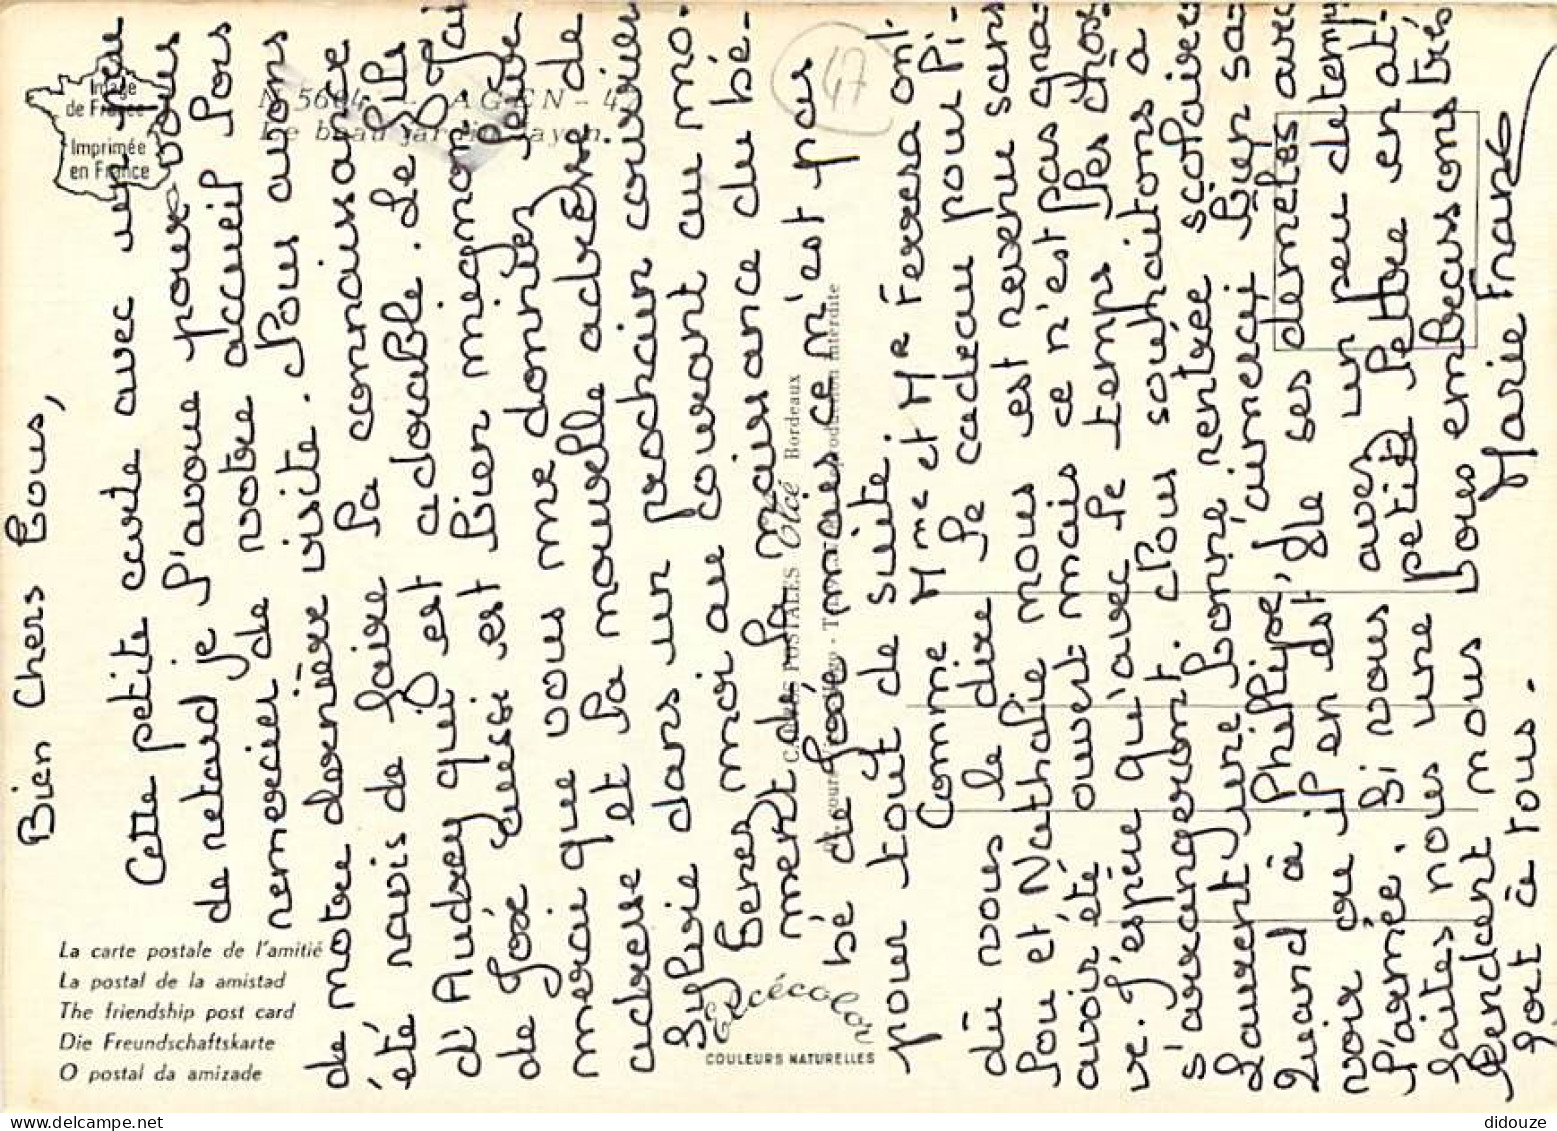 Bien Chers Tous,
Cette petite carte avec un peu
de retard je l'avoue pour vous
remercier de votre accueil lors
de notre dernière visite. Nous avons
été ravis de faire la connaissance
d'Audrey qui est adorable. Le fils
de José aussi est bien mignon. J'ai
merai que vous me donniez leur
adresse et la nouvelle adresse de
Sylvie dans un prochain courrier
Tenez moi au courant au mo-
ment de la naissance du bé-
bé de José mais ce n'est pas
pour tout de suite.
Comme Mme et Mr Ferrera ont
dû vous le dire le cadeau pour Pi-
lou et Nathalie nous est revenu sans
avoir été ouvert mais ce n'est pas gra-
ve. J'espère qu'avec le temps les chos
s'arrangeront. Nous souhaitons à
Laurent une bonne rentrée scolaire
Quand à Philippe, j'aimerai bien sa-
voir où il en est de ses demelés avec
l'armée. Si vous avez un peu de temps
faites nous une petite lettre en at-
tendant nous vous embrassons très
fort à tous.
Marie France
47
Image
de France
Imprimée
en France
N° 5604 - AGEN - 47
Le beau jardin Jayan.
La carte postale de l'amitié
La postal de la amistad
The friendship post card
Die Freundschaftskarte
O postal da amizade
CARTES POSTALES Elcé Bordeaux
reproduction interdite
Elcécolor
COULEURS NATURELLES
didouze